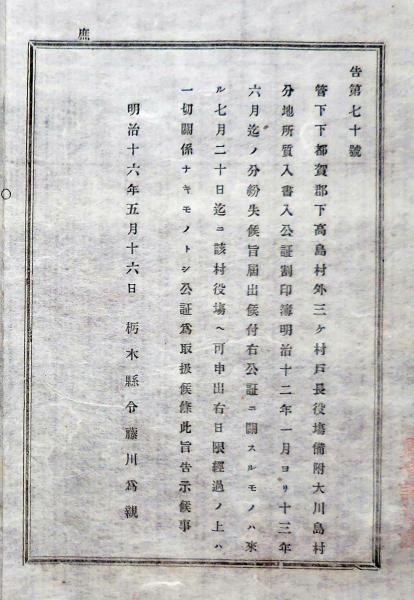 庶
告第七十號
管下下都賀郡下高島村外三ケ村戸長役塲備附大川島村
分地所質入書入公証割印簿明治十二年一月ヨリ十三年
六月迄ノ分紛失候旨届出候付右公証ニ關スルモノハ來
ル七月二十日迄ニ該村役塲ヘ可申出右日限經過ノ上ハ
一切關係ナキモノトシ公証爲取扱候條此旨告示候事
明治十六年五月十六日 栃木縣令藤川爲親